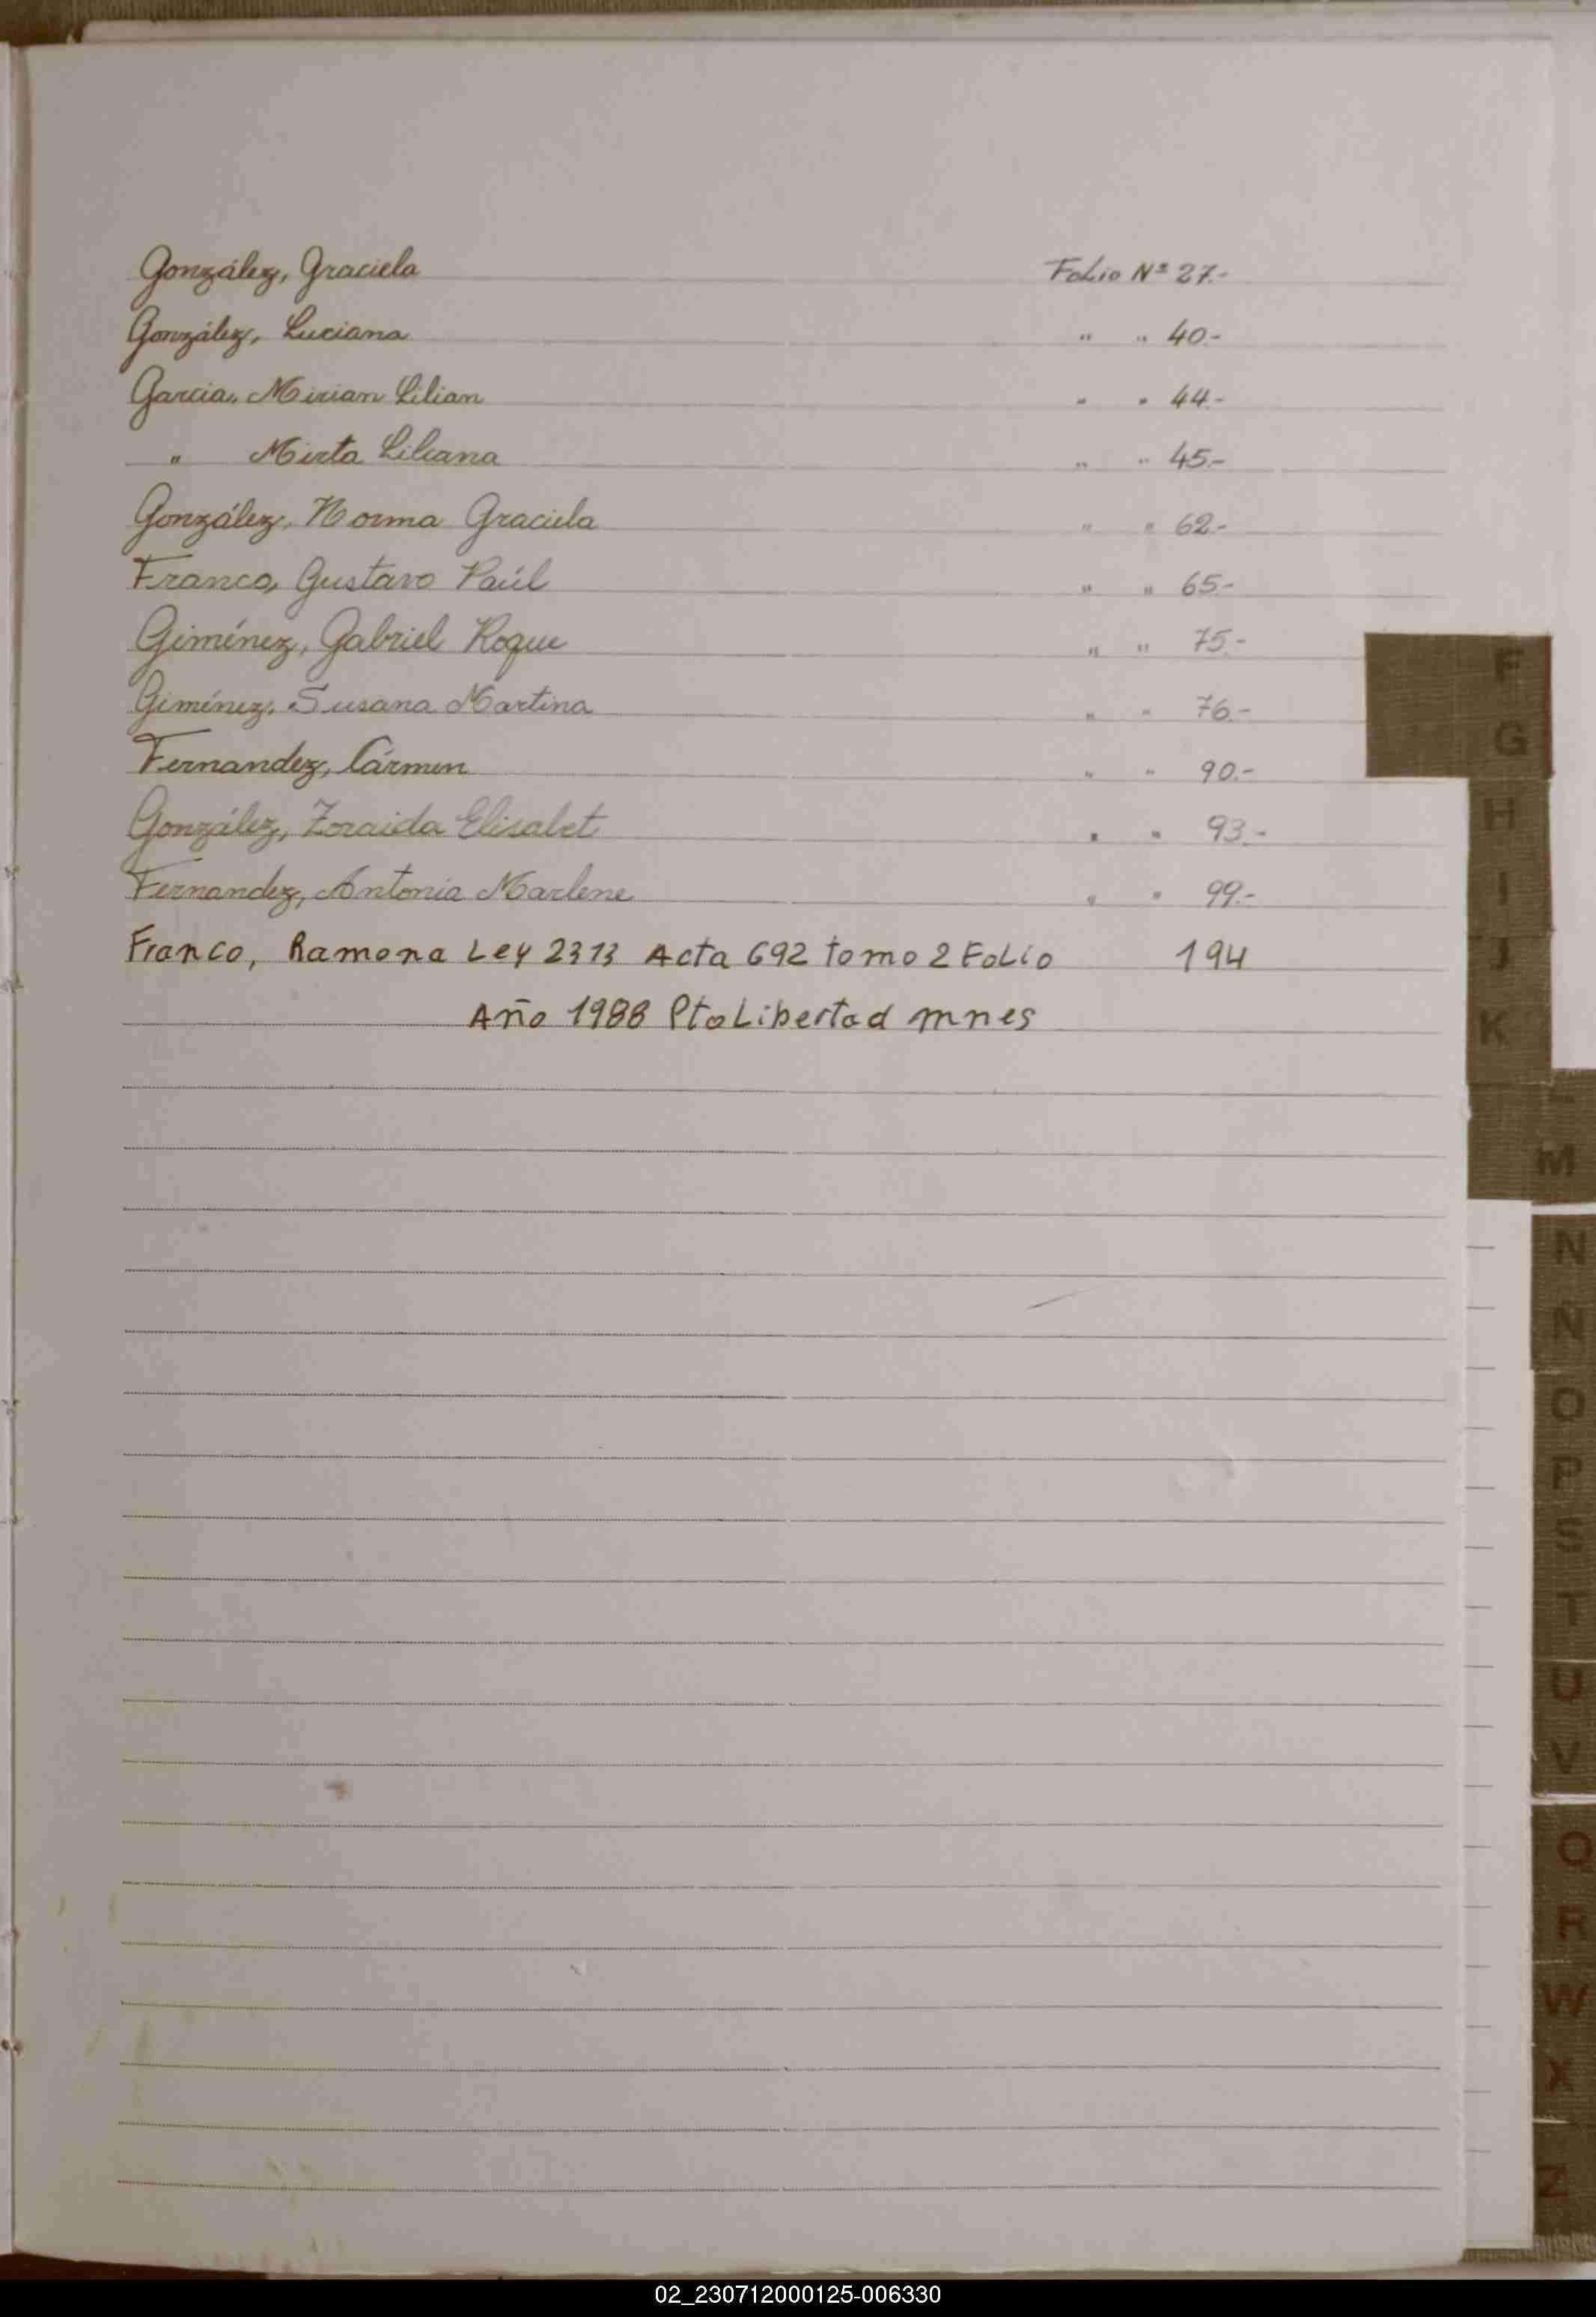 González, Graciela Folio Nº 27.-
González, Luciana " " 40.-
Garcia, Mirian Lilian " " 44.-
" Mirta Liliana " " 45.-
González, Norma Graciela " " 62.-
Franco, Gustavo Raúl " " 65.-
Giménez, Gabriel Roque " " 75.-
Giménez, Susana Martina " " 76.-
Fernandez, Cármen " " 90.-
González, Zoraida Elisabet " " 93.-
Fernandez, Antonia Marlene " " 99.-
Franco, Ramona Ley 2313 Acta 692 tomo 2 Folio 194
Año 1988 Pto Libertad mnes
F
G
H
I
J
K
L
M
N
N
O
P
S
T
U
V
Q
R
W
X
Z
02_230712000125-006330